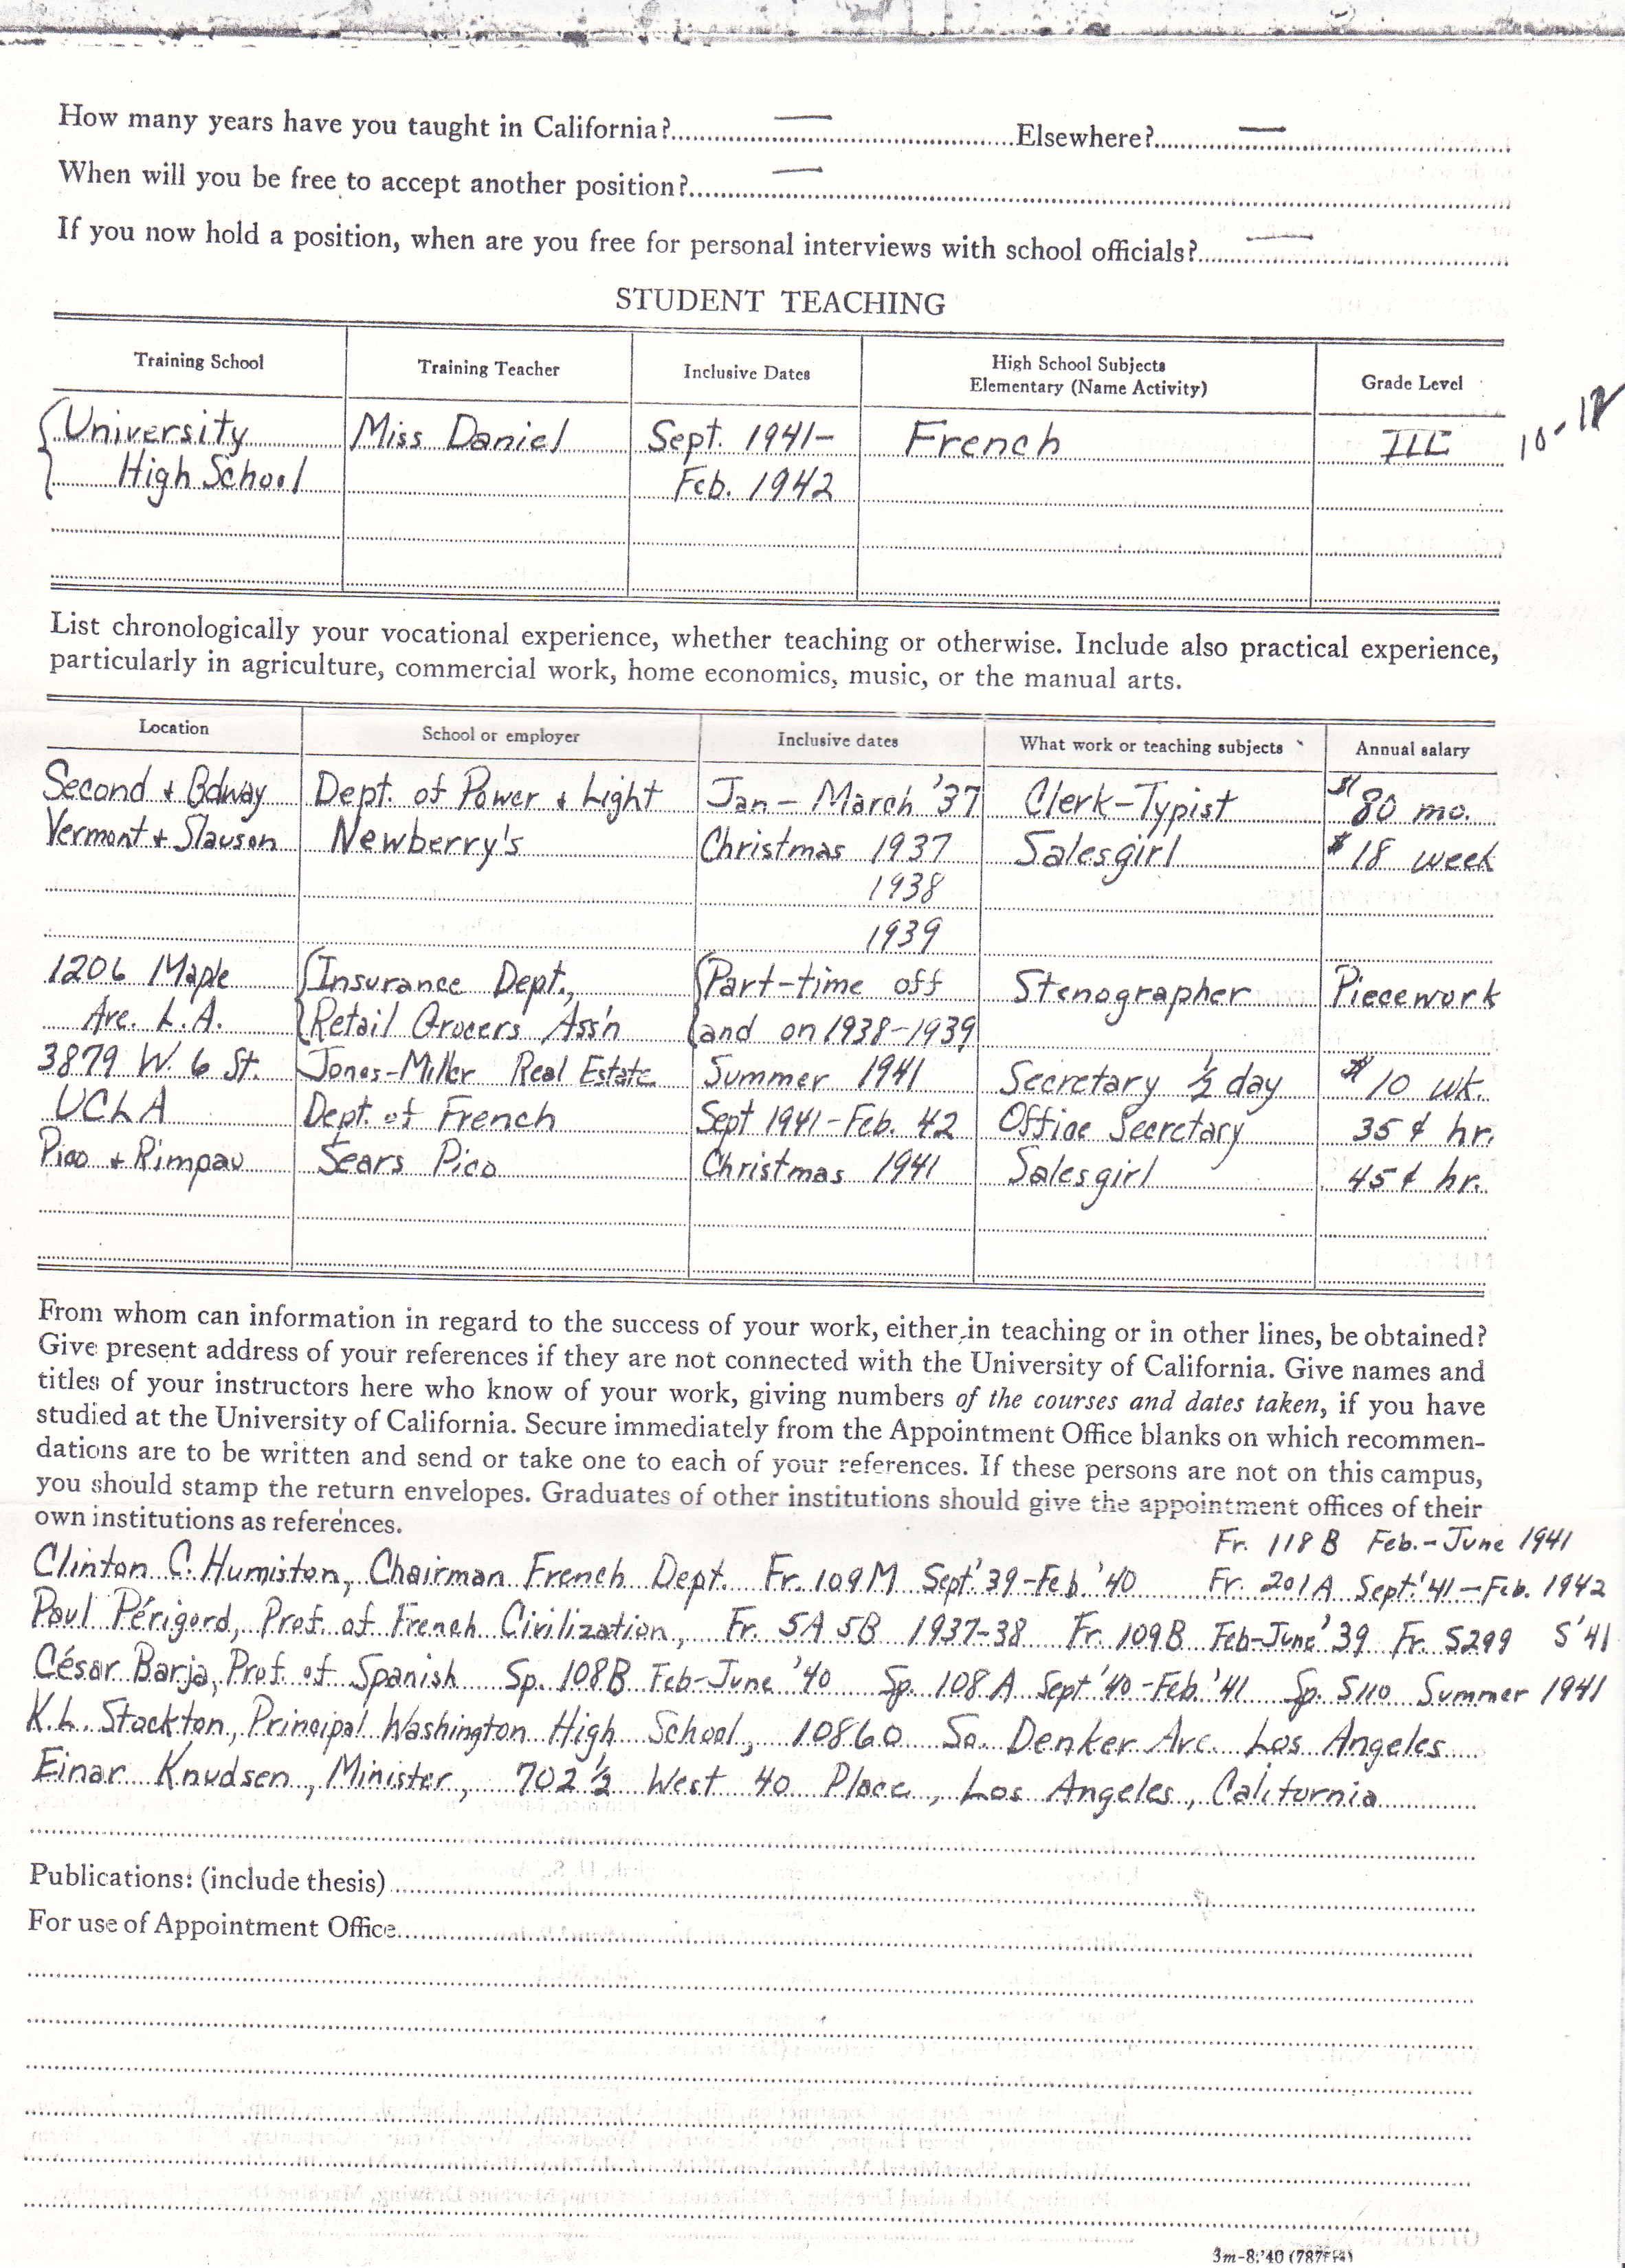 How many years have you taught in California? — Elsewhere? —
When will you be free to accept another position? —
If you now hold a position, when are you free for personal interviews with school officials? —
STUDENT TEACHING
Training School Training Teacher Inclusive Dates High School Subjects Elementary (Name Activity) Grade Level
University Miss Daniel Sept. 1941- French III 10-12
High School Feb. 1942
List chronologically your vocational experience, whether teaching or otherwise. Include also practical experience,
particularly in agriculture, commercial work, home economics, music, or the manual arts.
Location School or employer Inclusive dates What work or teaching subjects Annual salary
Second + Bdway Dept. of Power + Light Jan - March '37 Clerk-Typist $80 mo.
Vermont + Slauson Newberry's Christmas 1937 Salesgirl $18 week
1938
1939
1206 Maple Insurance Dept., Part-time off Stenographer Piecework
Ave. L.A. Retail Grocers Ass'n and on 1938-1939
3879 W. 6 St. Jones-Miller Real Estate Summer 1941 Secretary ½ day $10 wk.
UCLA Dept. of French Sept 1941-Feb. 42 Office Secretary 35¢ hr.
Pico + Rimpau Sears Pico Christmas 1941 Salesgirl 45¢ hr.
From whom can information in regard to the success of your work, either in teaching or in other lines, be obtained?
Give present address of your references if they are not connected with the University of California. Give names and
titles of your instructors here who know of your work, giving numbers of the courses and dates taken, if you have
studied at the University of California. Secure immediately from the Appointment Office blanks on which recommen-
dations are to be written and send or take one to each of your references. If these persons are not on this campus,
you should stamp the return envelopes. Graduates of other institutions should give the appointment offices of their
own institutions as references.
Fr. 118 B Feb.-June 1941
Clinton C. Humiston, Chairman French Dept. Fr. 109M Sept.'39-Feb '40 Fr. 201A Sept.'41-Feb. 1942
Paul Périgord, Prof. of French Civilization, Fr. 5A 5B 1937-38 Fr. 109B Feb-June '39 Fr. S299 S'41
César Barja, Prof. of Spanish Sp. 108B Feb-June '40 Sp. 108A Sept '40-Feb.'41 Sp. S110 Summer 1941
K.L. Stockton, Principal Washington High School, 10860 So. Denker Ave. Los Angeles
Einar Knudsen, Minister, 702 ½ West 40 Place, Los Angeles, California
Publications: (include thesis)
For use of Appointment Office
3m-8,'40